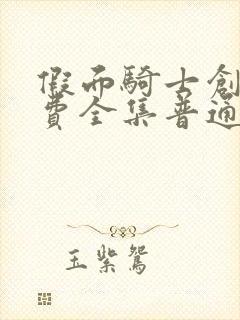 假面騎士創
費全集普通
玉紫鴛